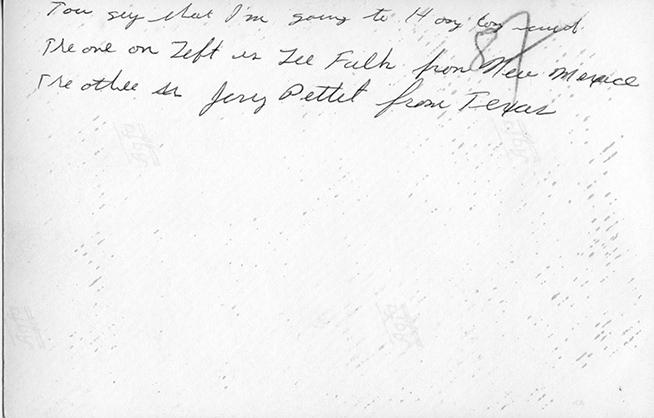 Tow guy that I'm going to H ong Kong with
The one on Left is Lee Falk from New Mexico
The other is Jerry Pettet from Texas
87